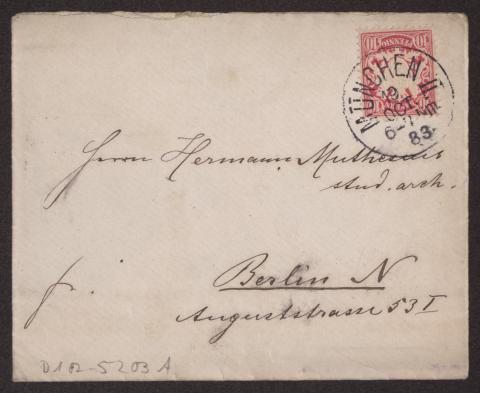 10 PFENNIG 10
MÜNCHEN II
OCT.
6-7 Nm
83.
Herrn Hermann Muthesius
stud. arch.
Berlin N
fr.
Auguststrasse 53 I
D 102-5203 A